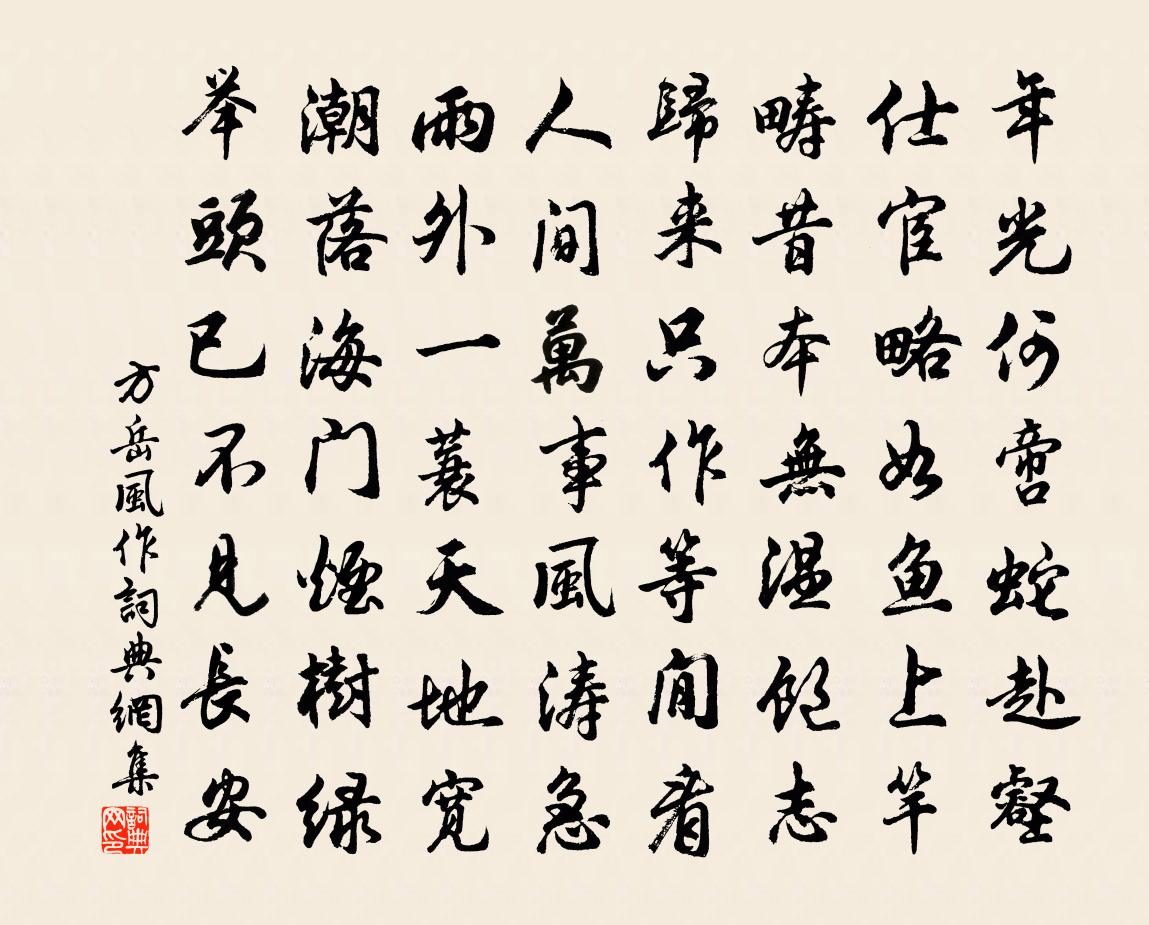 年光何啻蛇赴壑
仕宦略如鱼上竿
畴昔本無温飽志
歸来只作等閒看
人間萬事風涛急
雨外一蓑天地寬
潮落海门煙樹緑
举頭已不見長安
方岳風作詞典網集
詞典网印